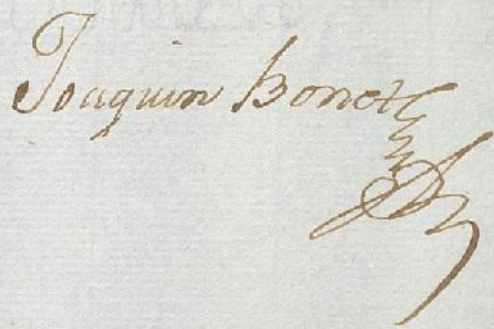 Joaquin Bonet